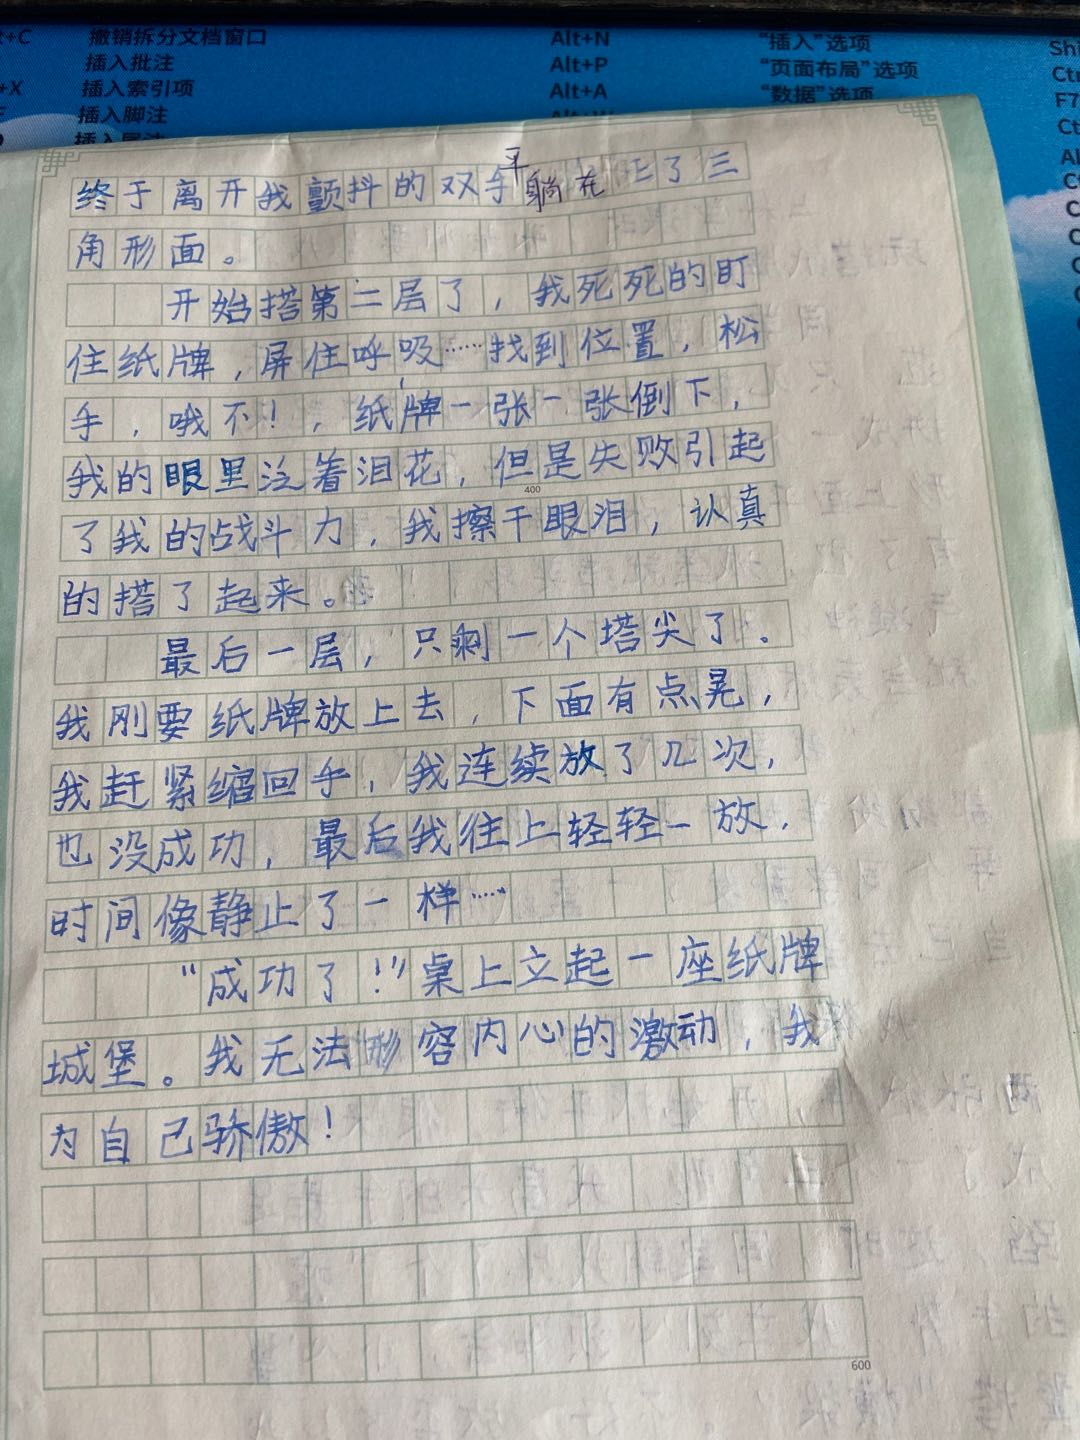 撤销拆分文档窗口 Alt+N "插入"选项
插入批注 Alt+P "页面布局"选项
插入索引项 Alt+A "数据"选项
插入脚注
终于离开我颤抖的双手平躺在了三
角形面。
开始搭第二层了，我死死的盯
住纸牌，屏住呼吸……找到位置，松
手，哦不！，纸牌一张一张倒下，
我的眼里泛着泪花，但是失败引起
400
了我的战斗力，我擦干眼泪，认真
的搭了起来。
最后一层，只剩一个塔尖了。
我刚要纸牌放上去，下面有点晃，
我赶紧缩回手，我连续放了几次，
也没成功，最后我往上轻轻一放，
时间像静止了一样……
"成功了！"桌上立起一座纸牌
城堡。我无法形容内心的激动，我
为自己骄傲！
600